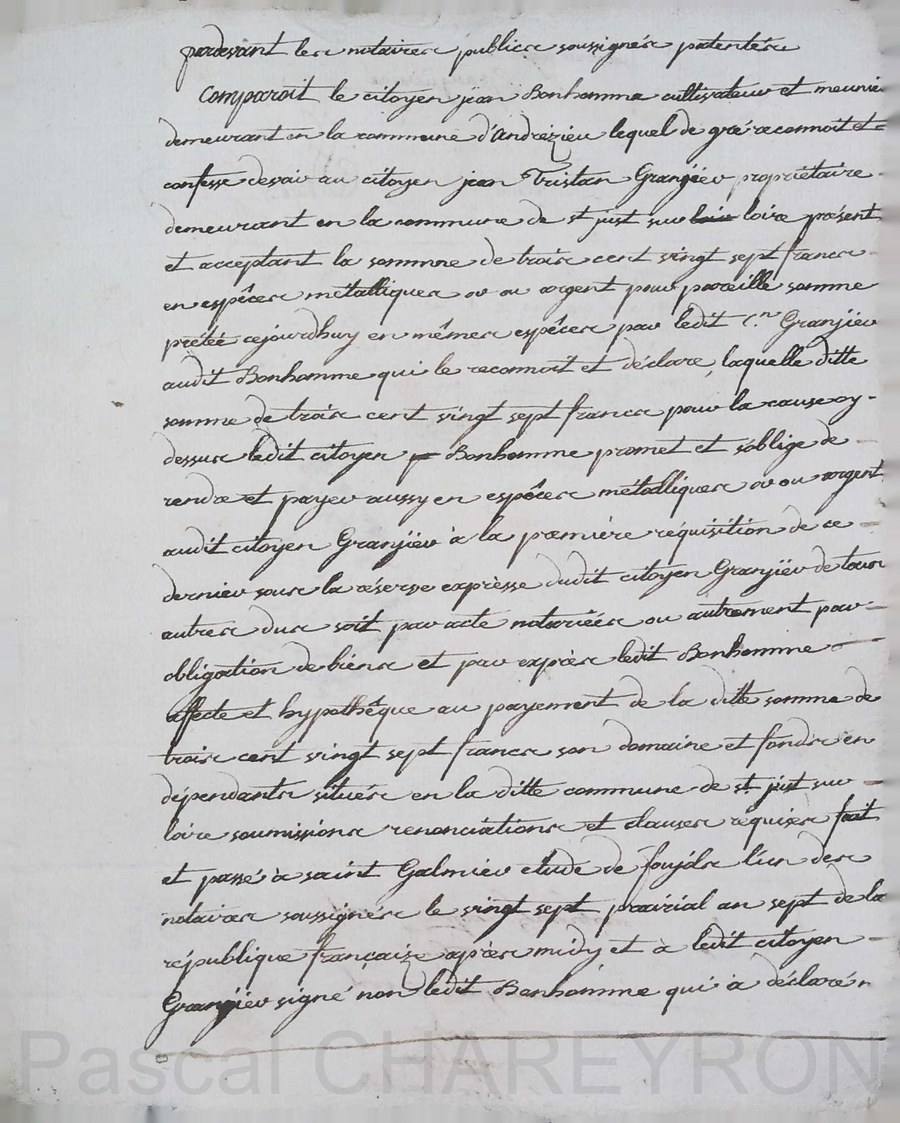 pardevant les notaires publics soussignés patentés
Comparoit le citoyen jean Bonhomme cultivateur et meunie
demeurant en la commune d'andrézieu lequel de gré reconnoit et
confesse devoir au citoyen jean Tristan Granjiér propriétaire
demeurant en la commune de st just sur loire loire présent
et acceptant la somme de trois cent vingt sept francs
en espèces métalliques or ou argent pour pareille somme
prétée cejourdhuy en mêmes espèces par ledit C.n Granjiér
audit Bonhomme qui le reconnoit et déclare, laquelle ditte
somme de trois cent vingt sept francs pour la cause cy-
dessus ledit citoyen Bonhomme promet et s'oblige de
rendre et payer aussy en espèces métalliques or ou argent
audit citoyen Granjiér à la première réquisition de ce
dernier sous la réserve expresse dudit citoyen Granjiér de tous
autres dus soit par acte notariées ou autrement par
obligation de biens et par exprès ledit Bonhomme
affecte et hypothêque au payement de la ditte somme de
trois cent vingt sept francs son domaine et fonds en
dépendants situés en la ditte commune de st just sur
loire soumissions renonciations et clauses requises fait
et passé à saint Galmier etude de foujols l'un des
notaires soussignés le vingt sept prairial an sept de la
république françaize après midy et à ledit citoyen
Granjiér signé non ledit Bonhomme qui à déclaré n
Pascal CHAREYRON